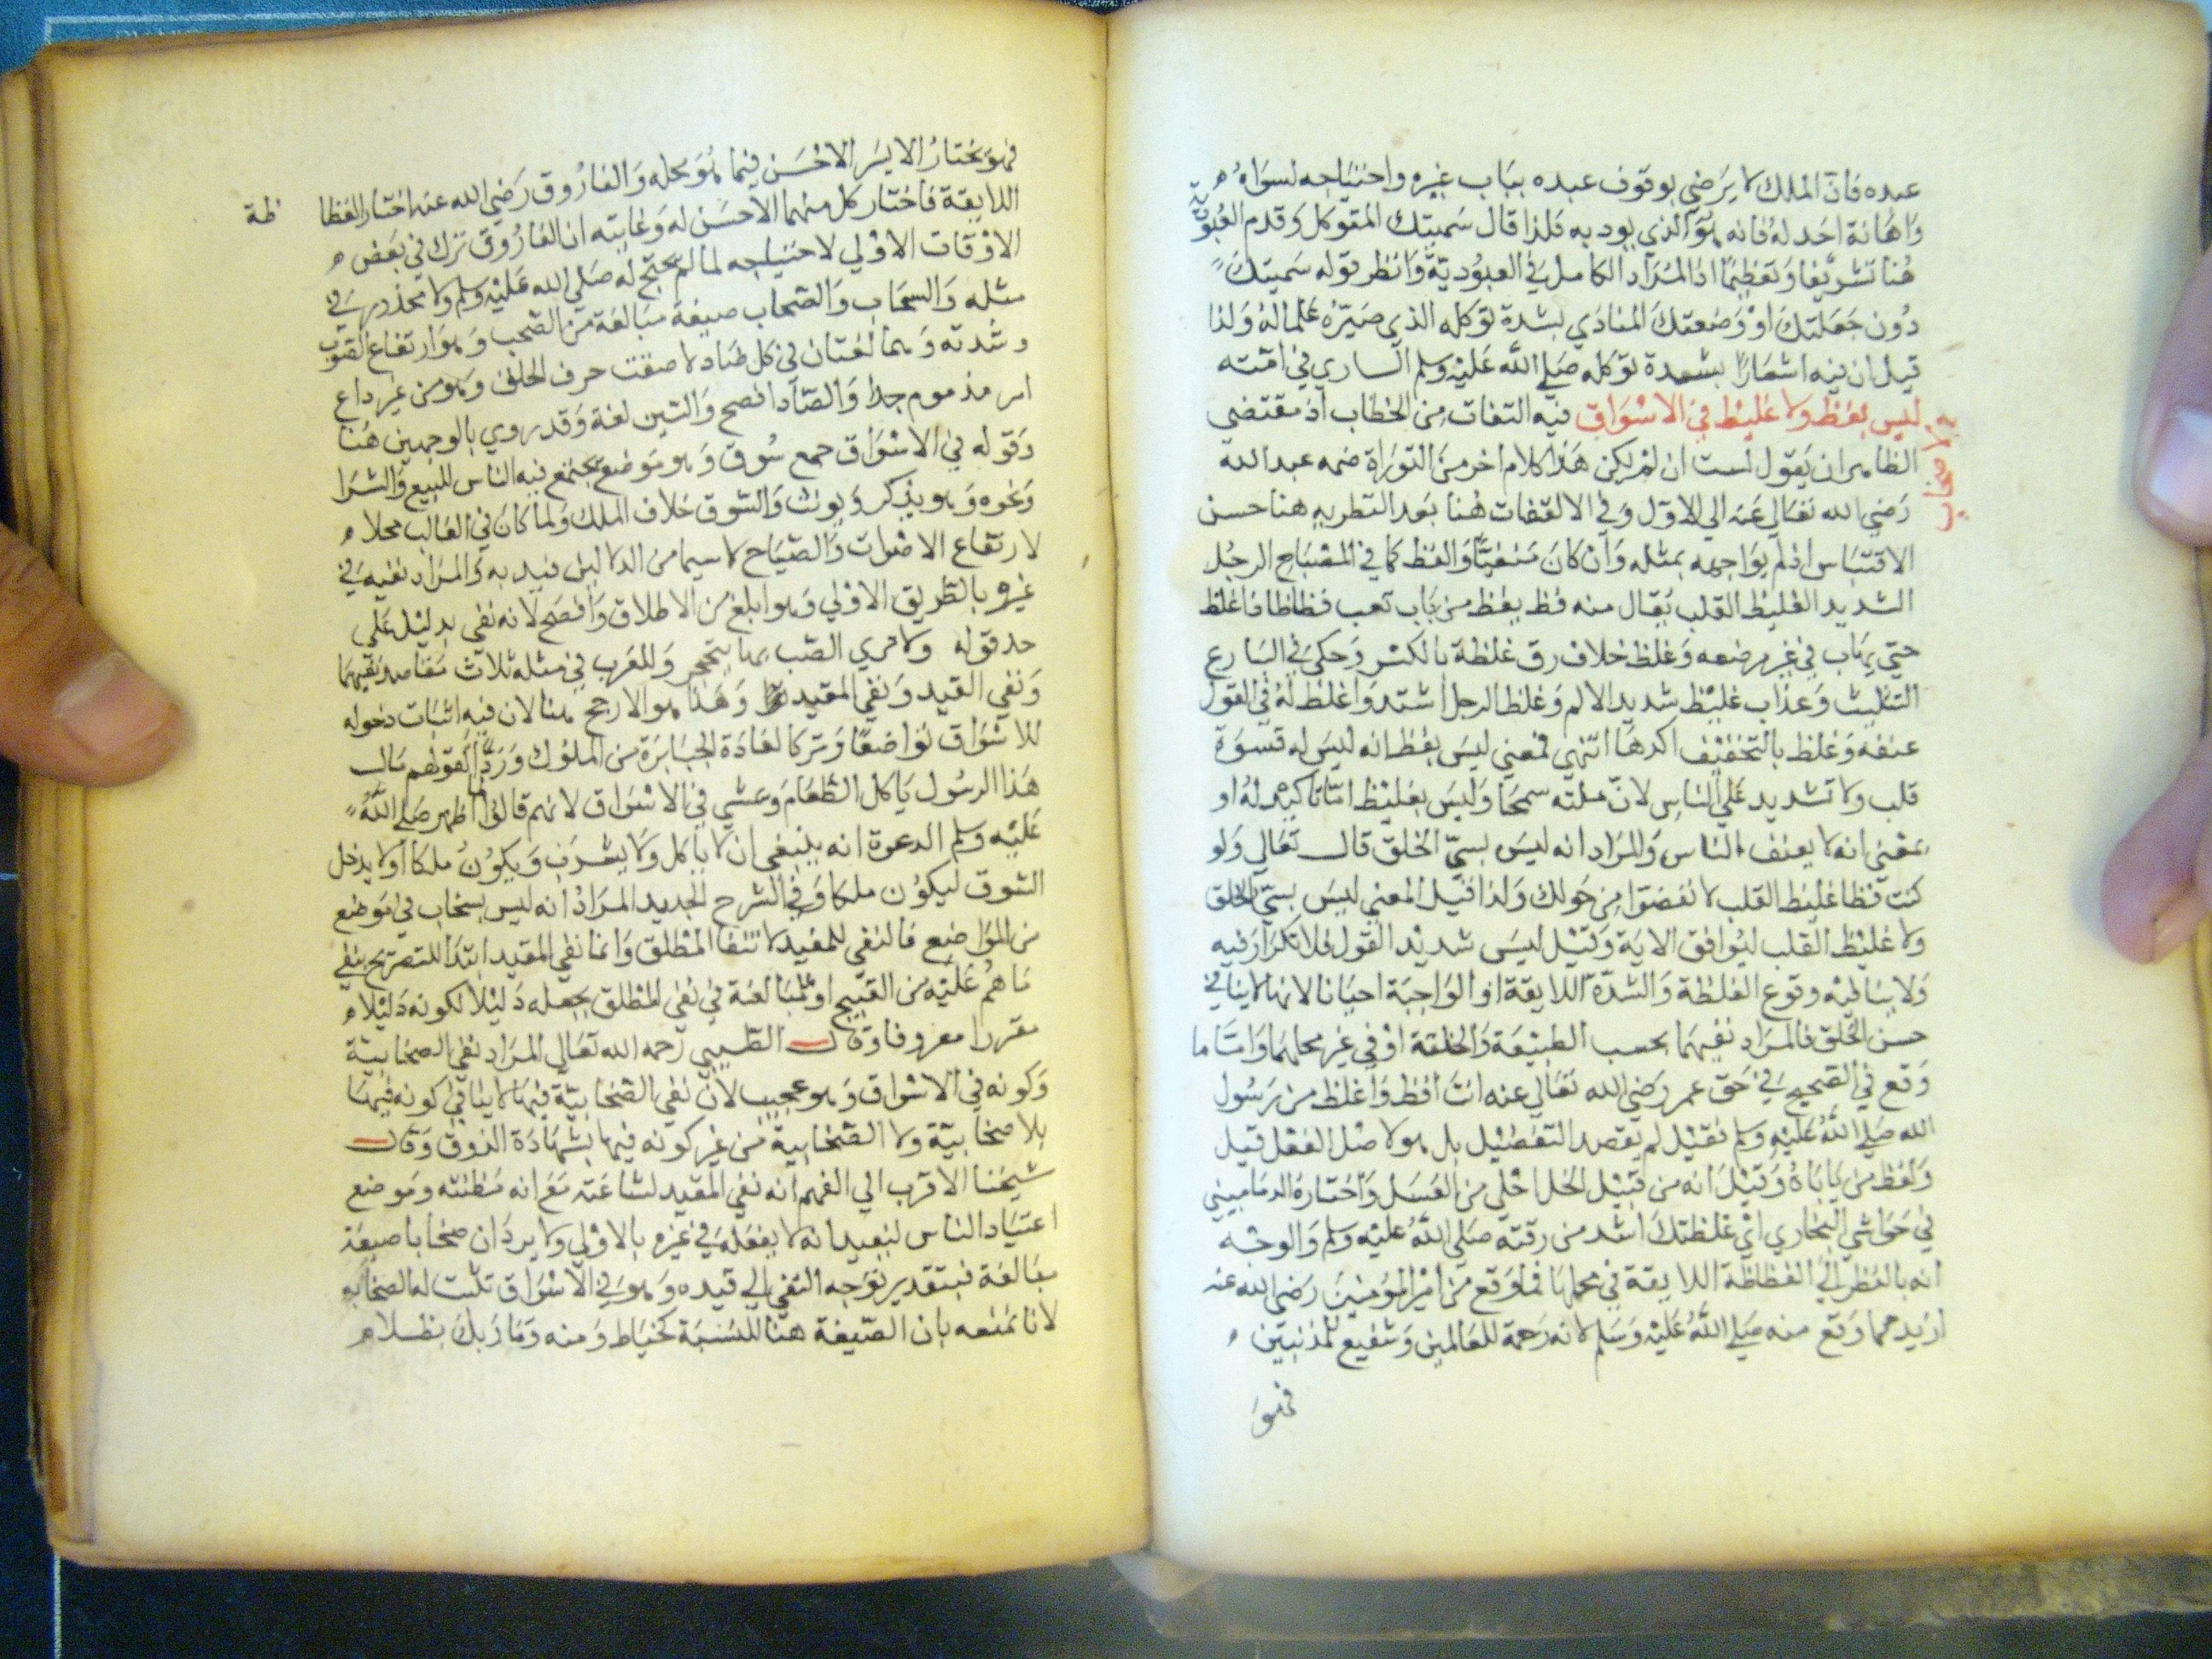 عبده فان الملك لا يرضي بوقوف عبده بباب غيره واحتياجه لسواه
واهانة احد له فانه هو الذي يود به فلذا قال سميتك المتوكل وقدم العبودية
هنا تشريفا وتعظيما اذ المراد الكامل في العبودية وانظر قوله سميتك
دون جعلتك او وضعتك المنادي بشدة توكله الذي صيره علما له ولذا
قيل ان فيه اشعارا بشدة توكله صلي الله عليه وسلم الساري في امته
ليس بفظ ولا غليظ في الاسواق فيه التفات من الخطاب اذ مقتضي
ولا سخاب
الظاهر ان يقول لست ان لم يكن هذا كلام اخر من التوراة ضمه عبد الله
رضي الله تعالي عنه الي الاول وفي الالتفات هنا بعد التطريه هنا حسن
الاقتباس اذ لم يواجهه بمثله وان كان منفيا والفظ كما في المصباح الرجل
الشديد الغليظ القلب يقال منه فظ يفظ من باب تعب فظاظا فاغلظ
حتي يهاب في غير موضعه وغلظ خلاف رق غلظة بالكسر وحكي في البارع
التثليث وعذاب غليظ شديد الالم وغلظ الرجل اشتد واغلظ له في القول
عنفه وغلظ بالتخفيف اكدها انتهي فمعني ليس بفظ انه ليس له قسوة
قلب ولا تشديد علي الناس لان ملته سمحا وليس بغليظ اما تاكيد له او
بمعني انه لا يعنف الناس والمراد انه ليس بسيئ الخلق قال تعالي ولو
كنت فظا غليظ القلب لا نفضوا من حولك ولذا قيل المعني ليس بسيئ الخلق
ولا غليظ القلب ليوافق الاية وقيل ليس شديد القول فلا تكرار فيه
ولا ينافيه وقوع الغلظة والشدة اللايقة او الواجبة احيانا لانها لا ينافي
حسن الخلق فالمراد نفيهما بحسب الطبيعة والخلقة او في غير محلهما واما ما
وقع في الصحيح في حق عمر رضي الله تعالي عنه انت افظ واغلظ من رسول
الله صلي الله عليه وسلم فقيل لم يقصد التفضيل بل هو لاصل الفعل قيل
ولفظ من يا باه وقيل انه من قبيل الخل احلي من العسل واختاره الدماميني
في حواشي البخاري اي غلظتك اشد من رقته صلي الله عليه وسلم والوجه
انه بالنظر الي الفظاظة اللايقة في محلها فما وقع من امير المؤمنين رضي الله عنه
ازيد مما وقع منه صلي الله عليه وسلم لانه رحمة للعالمين وشفيع للمذنبين
فهو
فهو يختار الايسر الاحسن فيما هو بحله والفاروق رضي الله عنه اختار الفظا
ظة
اللايقة فاختار كل منهما الاحسن له وغايته ان الفاروق ترك في بعض
الاوقات الاولي لاحتياجه لما لم يحتج له صلي الله عليه وسلم ولا محذور في
مثله والسخاب والصخاب صيغة مبالغة من الصخب وهو ارتفاع الصوت
وشدته وهما لغتان في كل صاد لاصقت حرف الحلق وهو من غير داع
امر مذموم جدا والصاد افصح والسين لغة وقد روي بالوجهين هنا
وقوله في الاسواق جمع سوق وهو موضع يجتمع فيه الناس للبيع والشرا
ونحوه وهو يذكر ويونث والسوق خلاف الملك ولما كان في الغالب محلا
لارتفاع الاصوات والصياح لا سيما من الدلالين قيد به والمراد نفيه في
غيره بالطريق الاولي وهو ابلغ من الاطلاق وافصح لانه نفي بدليل علي
حد قوله ولا تري الضب بها ينجحر وللعرب في مثله ثلاث مقاصد نفيهما
ونفي القيد ونفي المقيد وهذا هو الارجح هنا لان فيه اثبات دخوله
للاسواق تواضعا وتركا لعادة الجبابرة من الملوك وردا لقولهم مال
هذا الرسول ياكل الطعام ويمشي في الاسواق لانهم قالوا لما اظهر صلي الله
عليه وسلم الدعوة انه ينبغي ان لا ياكل ولا يشرب ويكون ملكا او لا يدخل
السوق ليكون ملكا وفي الشرح الجديد المراد انه ليس بسخاب في موضع
من المواضع فالنفي للمقيد لانتفا المطلق وانما نفي المقيد ابتدا للتصريح بنفي
ما هم عليه من القبيح او للمبالغة في نفي المطلق بجعله دليلا لكونه دليلا
مقررا معروفا وقال الطيبي رحمه الله تعالي المراد نفي الصخابية
وكونه في الاسواق وهو عجيب لان نفي الصخابية فيها لا ينافي كونه فيها
بلا صخابية ولا الصخابية من غير كونه فيها بشهادة الذوق وقال
شيخنا الاقرب الي الفهم انه نفي المقيد لشناعته مع انه مظنته وموضع
اعتياد الناس ليفيد انه لا يفعله في غيره بالاولي ولا يرد ان صخابا صيغة
مبالغة فبتقدير توجه النفي الي قيده وهو في الاسواق تثبت له الصخابه
لانا نمنعه بان الصيغة هنا للنسبة كخياط ومنه وما ربك بظلام